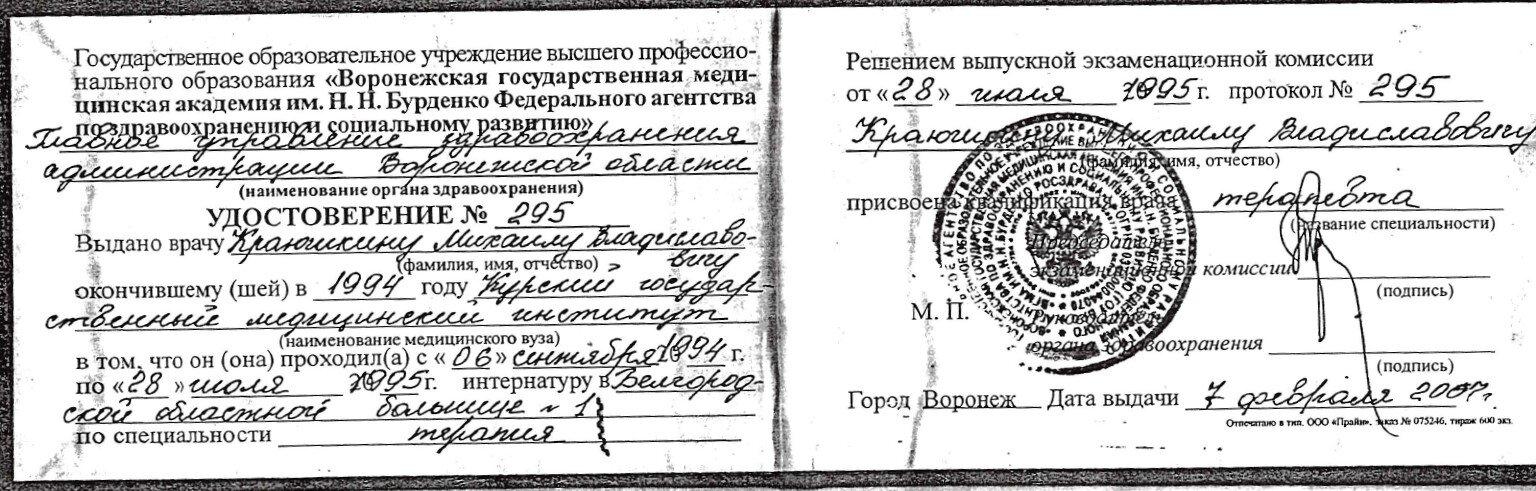 Государственное образовательное учреждение высшего профессио-
нального образования «Воронежская государственная меди-
цинская академия им. Н. Н. Бурденко Федерального агентства
по здравоохранению и социальному развитию»
Главное управление здравоохранения
администрации Воронежской области
(наименование органа здравоохранения)
УДОСТОВЕРЕНИЕ № 295
Выдано врачу Краюшкину Михаилу Владиславо-
вичу
(фамилия, имя, отчество)
окончившему (шей) в 1994 году Курский государ-
ственный медицинский институт
(наименование медицинского вуза)
в том, что он (она) проходил(а) с «06» сентября 1994 г.
по «28» июля 1995г. интернатуру в Белгород-
ской областной больнице № 1
по специальности терапия
Решением выпускной экзаменационной комиссии
от «28» июля 1995 г. протокол № 295
Краюшкину Михаилу Владиславовичу
(фамилия, имя, отчество)
присвоена квалификация врача терапевта
(название специальности)
Председатель
экзаменационной комиссии
(подпись)
М. П.
Руководитель
органа здравоохранения
(подпись)
Город Воронеж Дата выдачи 7 февраля 2007г.
Отпечатано в тип. ООО «Прайм», заказ № 075246, тираж 600 экз.